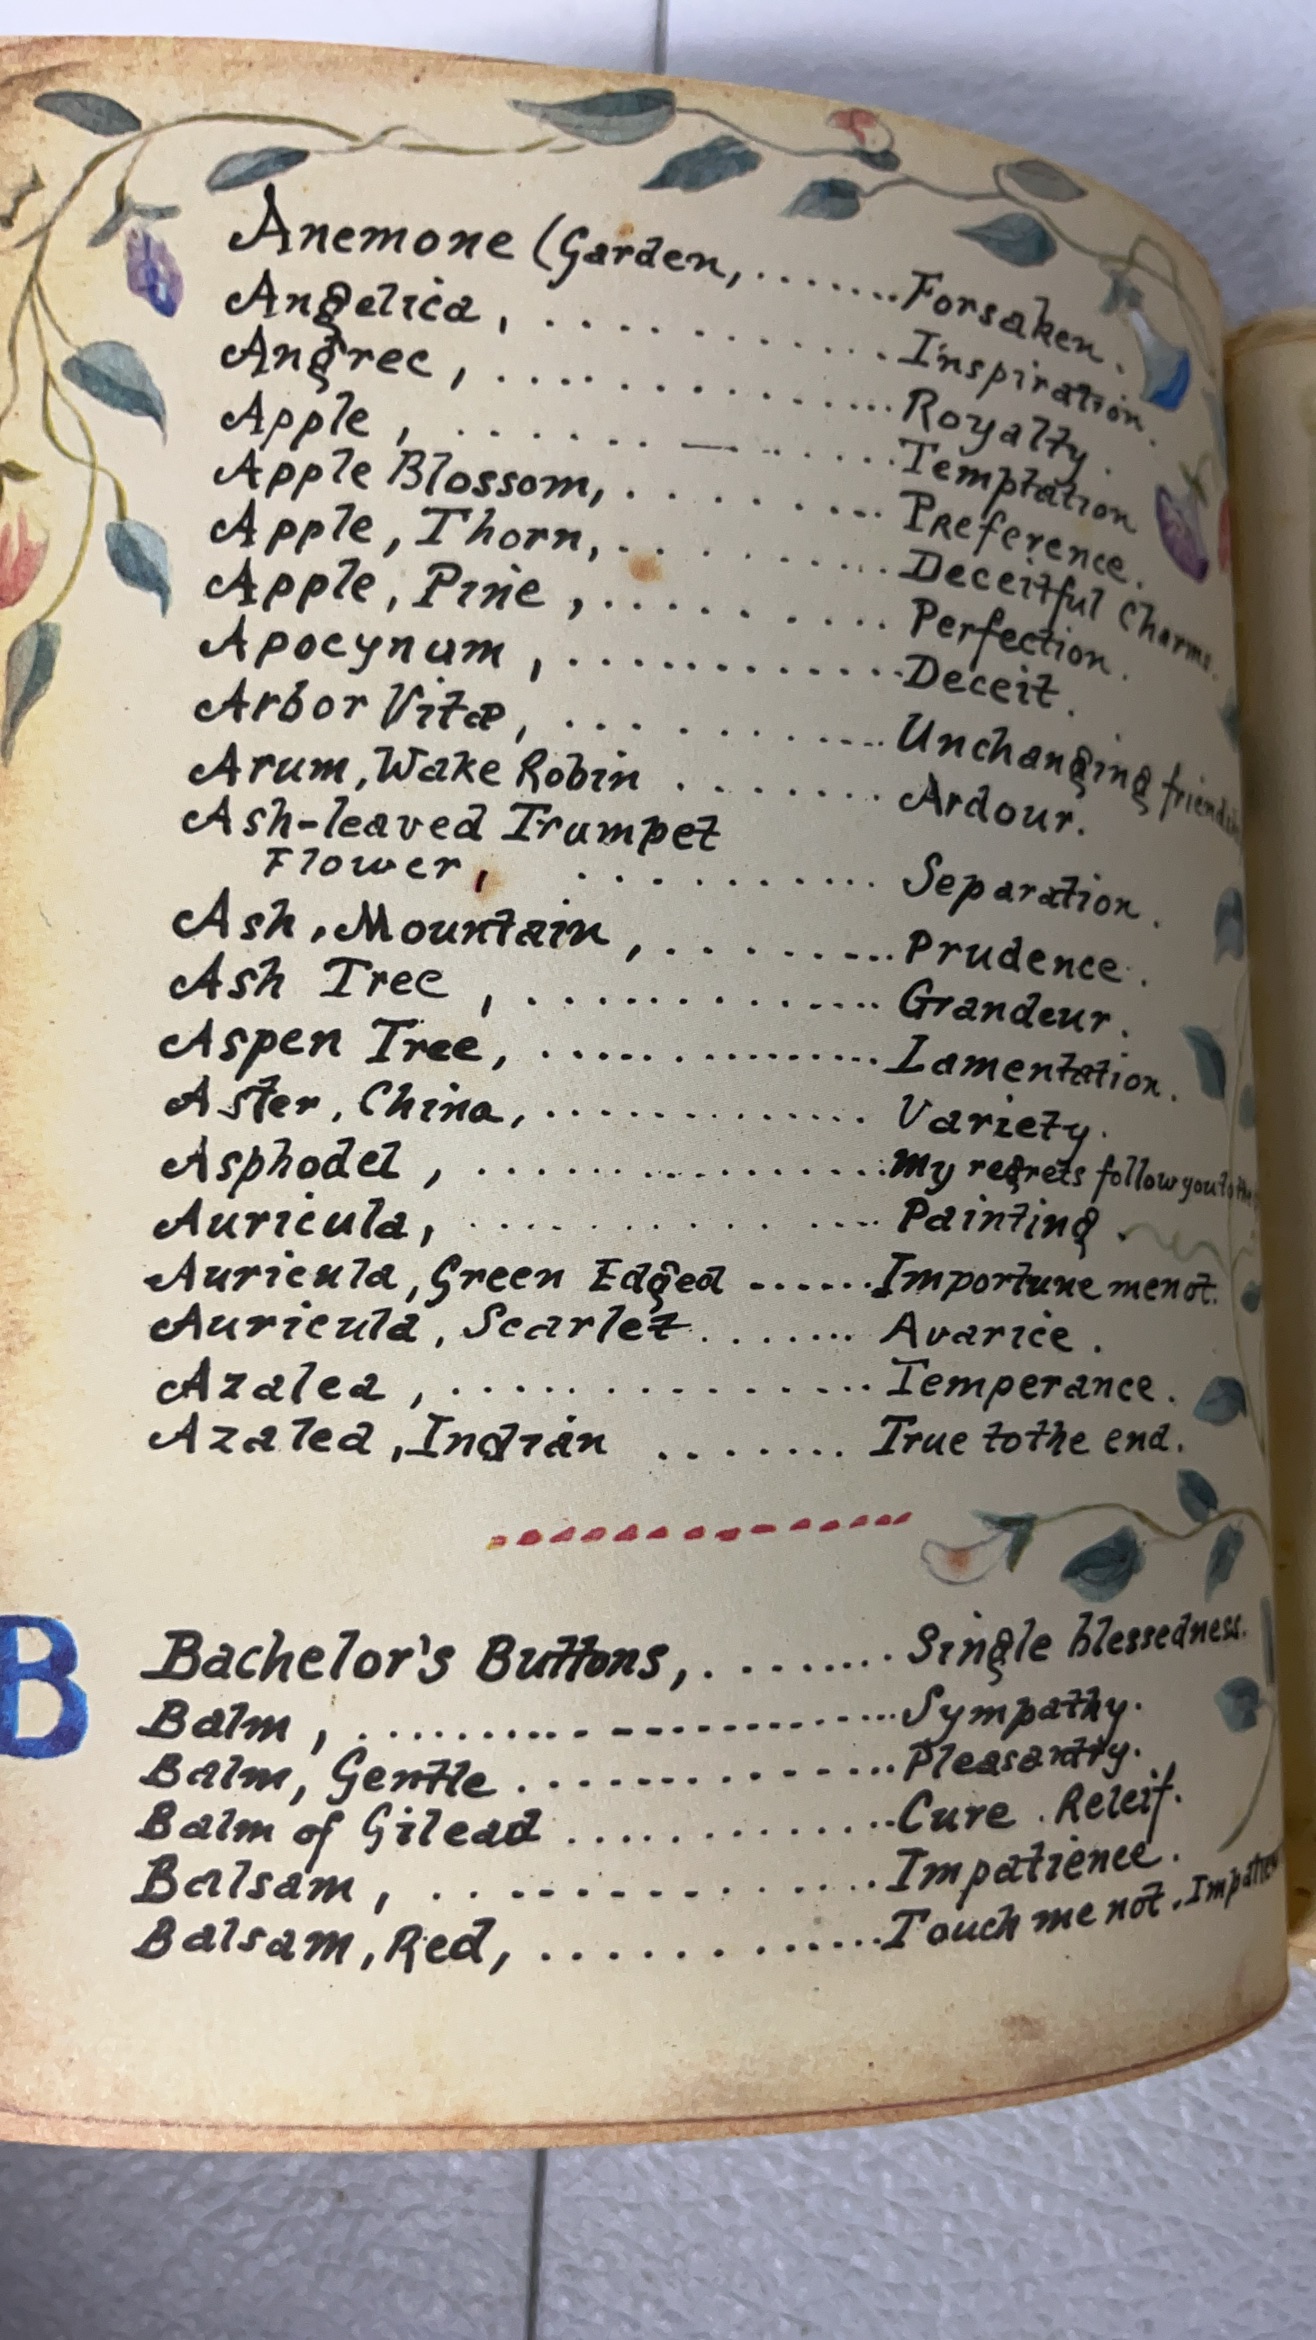 Anemone (Garden, ....... Forsaken.
Angelica, ............ Inspiration.
Angrec, ............. Royalty.
Apple, ............ Temptation
Apple Blossom, ......... Preference.
Apple, Thorn, ......... Deceitful Charms.
Apple, Pine, ......... Perfection.
Apocynum, ............ Deceit.
Arbor Vitæ, ........... Unchanging
Arum, Wake Robin ....... Ardour.
Ash-leaved Trumpet
Flower, .......... Separation.
Ash, Mountain, ......... Prudence.
Ash Tree, ............. Grandeur.
Aspen Tree, ............... Lamentation.
Aster, China, ............. Variety.
Asphodel, ................ My regrets follow you to the
Auricula, .............. Painting.
Auricula, Green Edged ...... Importune me not.
Auricula, Scarlet ....... Avarice.
Azalea, ................ Temperance.
Azalea, Indian ....... True to the end.
B
Bachelor's Buttons, ........ Single blessedness.
Balm, ...................... Sympathy.
Balm, Gentle .............. Pleasantry.
Balm of Gilead ............. Cure. Releif.
Balsam, .............. Impatience.
Balsam, Red, ............ Touch me not.